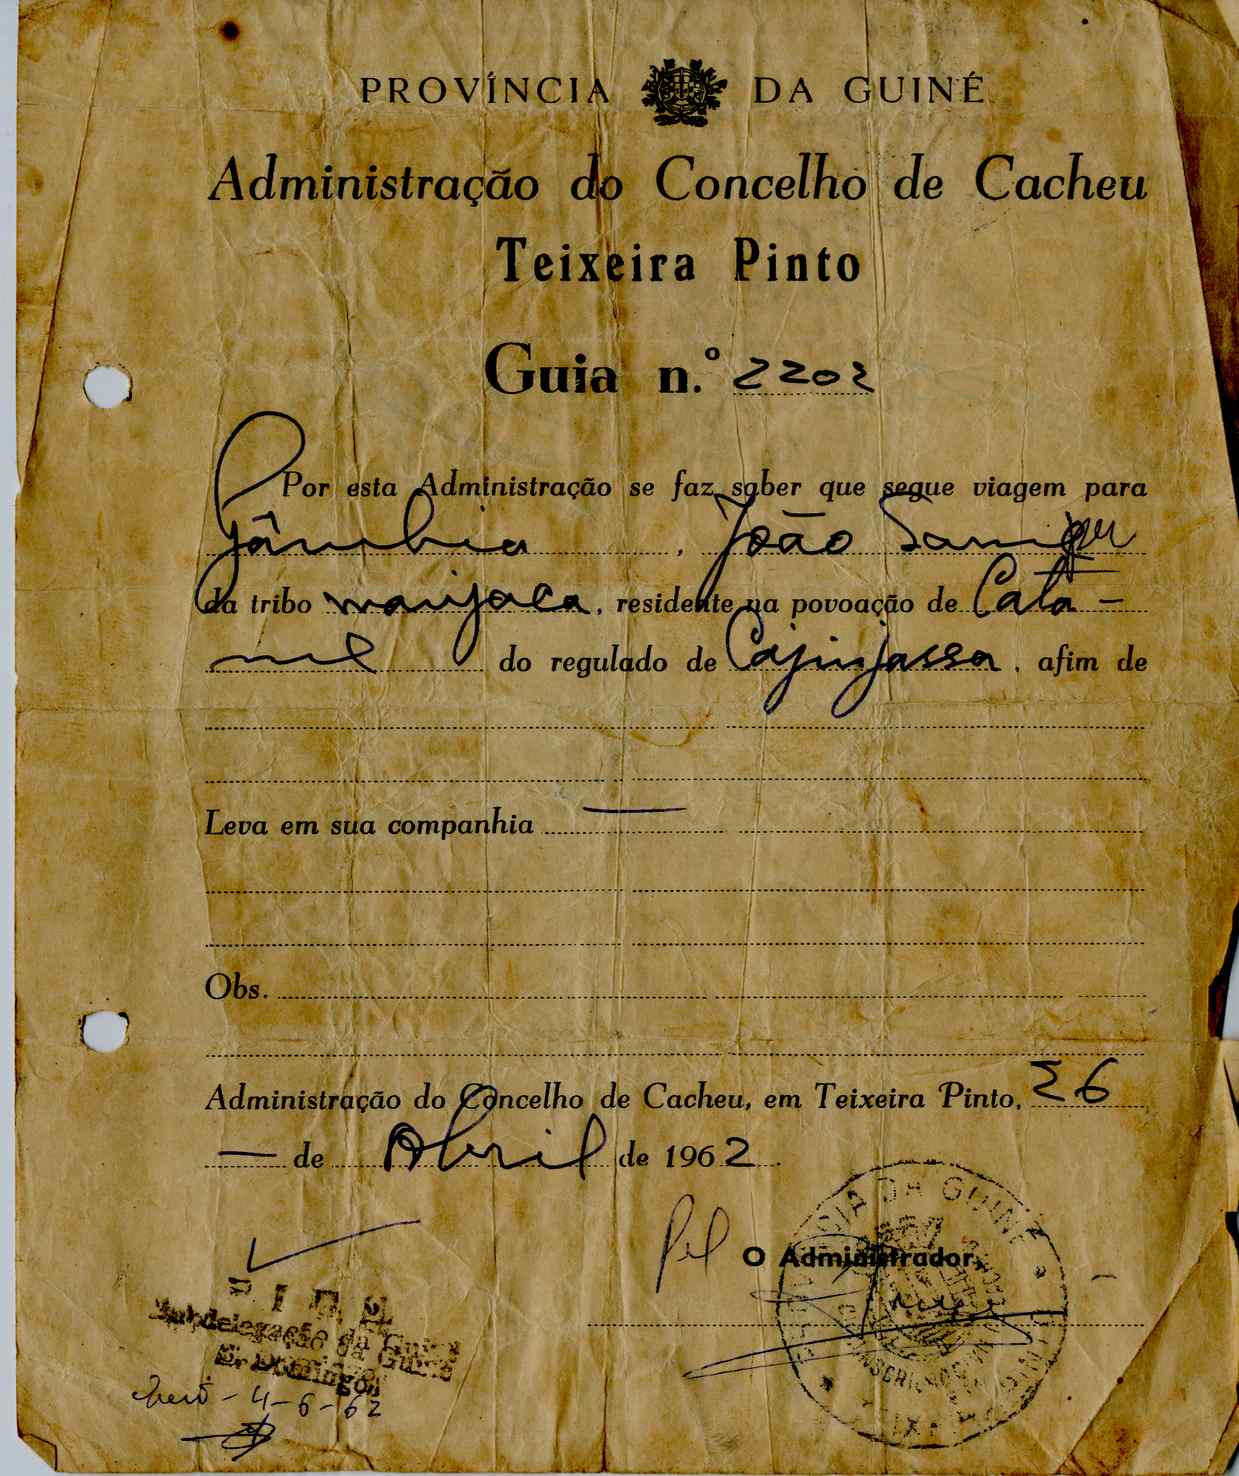 PROVÍNCIA DA GUINÉ
Administração do Concelho de Cacheu
Teixeira Pinto
Guia n.º 2202
Por esta Administração se faz saber que segue viagem para
Gâmbia, João
da tribo manjaca, residente na povoação de Cata-
mel do regulado de Cajinjassa, afim de
Leva em sua companhia —
Obs.
Administração do Concelho de Cacheu, em Teixeira Pinto, 26
— de Abril de 1962.
Pel O Administrador,
DA GUINÉ
P I D E
Subdelegação da Guiné
S. Domingos
4-6-62